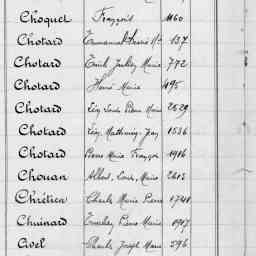 Choquet François 1160
Chotard Emmanuel 137
Chotard Emile Julien Marie 772
Chotard Henri Marie 1195
Chotard Léon Louis Pierre Marie 2629
Chotard Léon Mathurin Jean 1536
Chotard Pierre Marie François 1916
Chouan Albert Louis Marie 2613
Chrétien Charles Marie Pierre 1741
Chuinard Pierre Marie
Civel Charles Joseph Marie 596